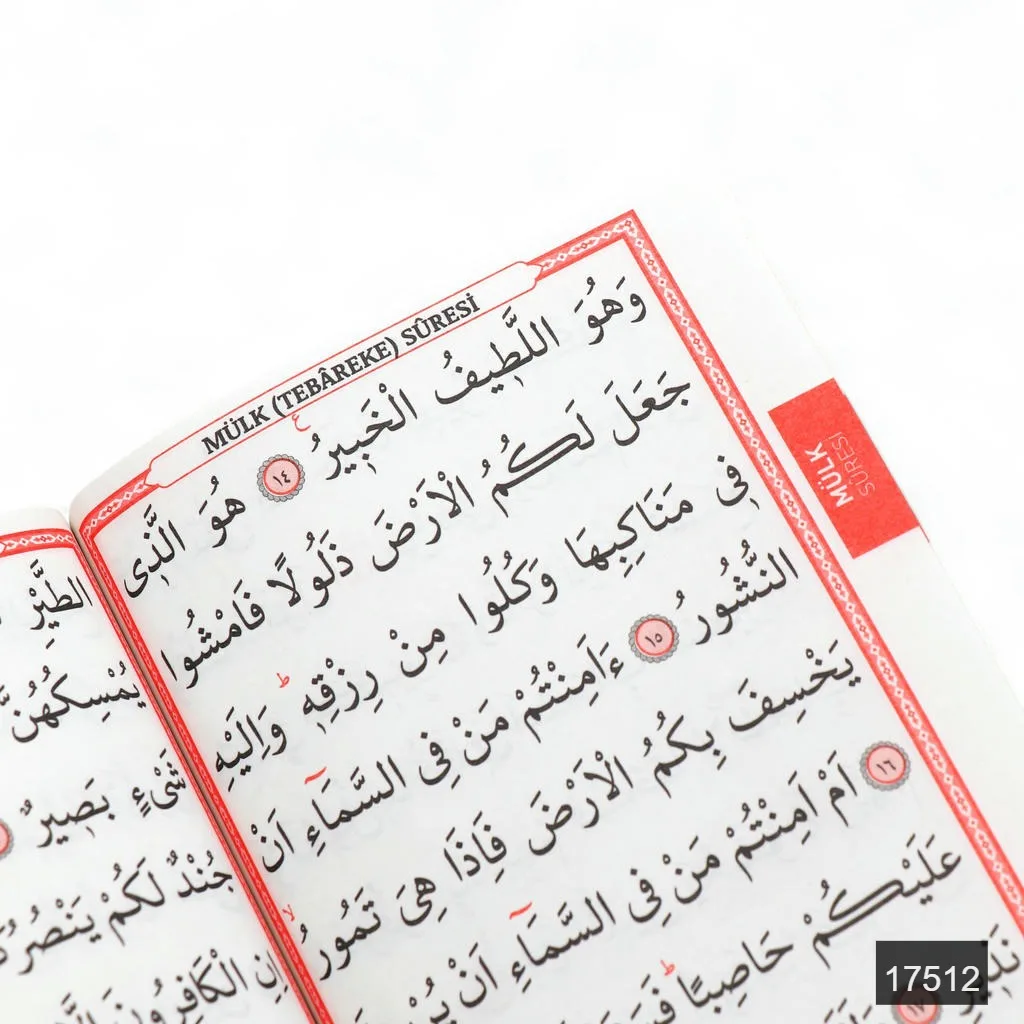 MÜLK (TEBÂREKE) SÛRESİ
وَهُوَ اللَّطٖيفُ الْخَبٖيرُ ﴿١٤﴾ هُوَ الَّذٖى
جَعَلَ لَكُمُ الْاَرْضَ ذَلُولًا فَامْشُوا
فٖى مَنَاكِبِهَا وَكُلُوا مِنْ رِزْقِهٖ وَاِلَيْهِ
النُّشُورُ ﴿١٥﴾ ءَاَمِنْتُمْ مَنْ فِى السَّمَٓاءِ اَنْ
يَخْسِفَ بِكُمُ الْاَرْضَ فَاِذَا هِىَ تَمُورُ
﴿١٦﴾ اَمْ اَمِنْتُمْ مَنْ فِى السَّمَٓاءِ اَنْ
عَلَيْكُمْ حَاصِبًا
نَذٖيرِ ﴿١٧﴾
MÜLK
SÛRESİ
الطَّيْرِ
يُمْسِكُهُنَّ
شَىْءٍ بَصٖيرٌ
جُنْدٌ لَكُمْ
اِنِ الْكَافِرُونَ
17512